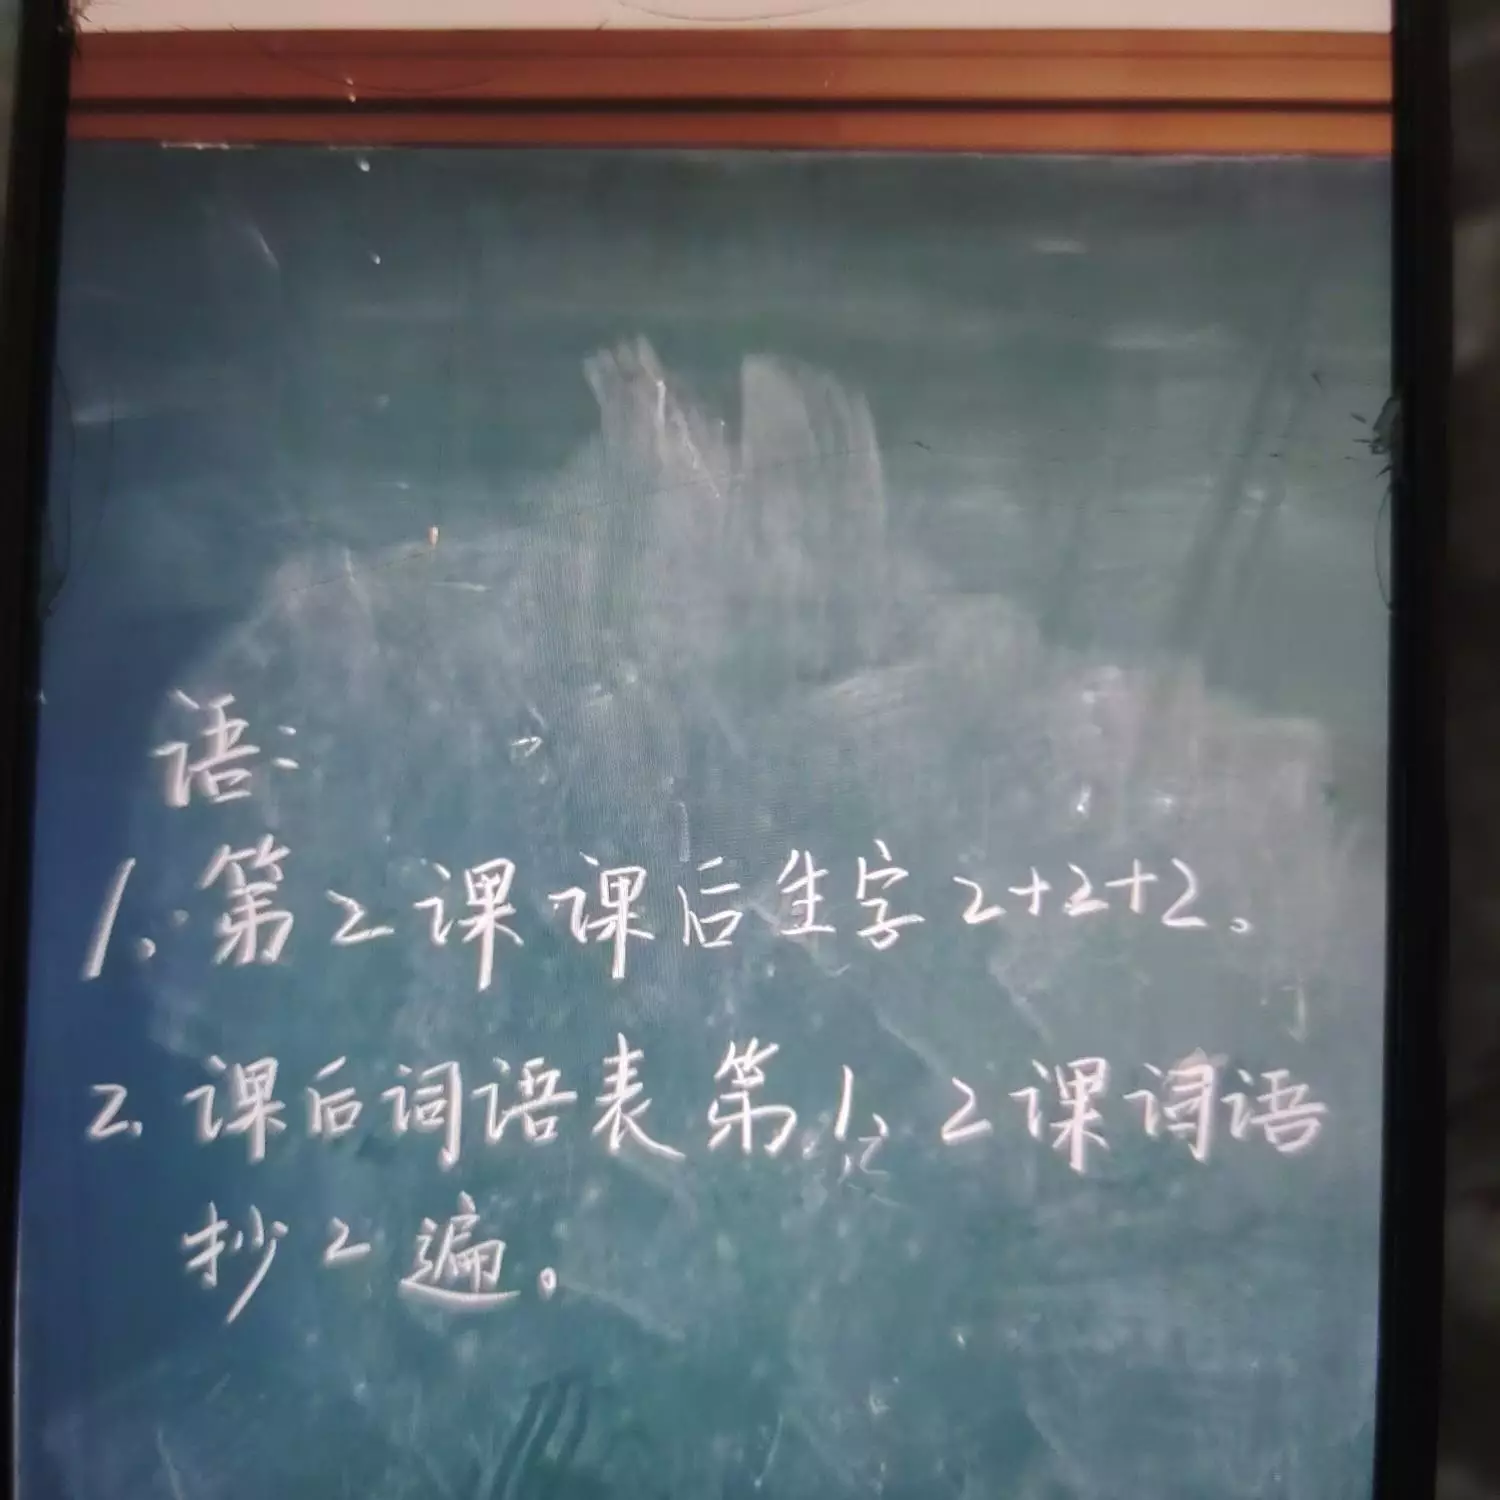 语:
1.第2课课后生字2+2+2。
2.课后词语表第1、2课词语
抄2遍。